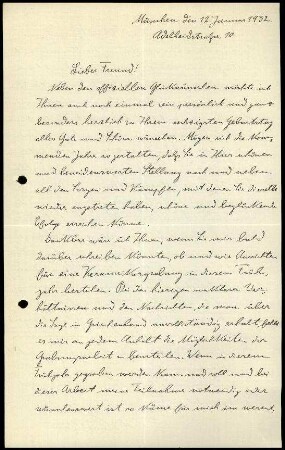 München den 12 Januar 1932
Adelheidstrasse 10
Lieber Freund!
Neben den offiziellen Glückwünschen möchte ich
Ihnen auch noch einmal rein persönlich und ganz
besonders herzlich zu Ihrem sechzigsten Geburtstag
alles Gute und Schöne wünschen. Mögen sich die kom-
menden Jahre so gestalten, daß Sie in Ihrer schönen
und beneidenswerten Stellung nach und neben
all den Sorgen und Kämpfen, mit denen Sie
wieder angetreten haben, schöne und beglückende
Erfolge erreichen können.
Dankbar wäre ich Ihnen, wenn Sie mir bald
darüber schreiben könnten, ob und wie Aussichten
für eine in diesem Früh-
jahr bestehen. Bei den hiesigen Ver-
hältnissen und den Nachrichten, die man über
die Lage in Griechenland erhält,
es mir an jedem Anhalt die Möglichkeiten der
Grabungsarbeit zu beurteilen. Wenn in diesem
Frühjahr gegraben werden kann und soll und bei
dieser Arbeit meine Teilnahme notwendig oder
wünschenswert ist so wäre für mich von Wert,